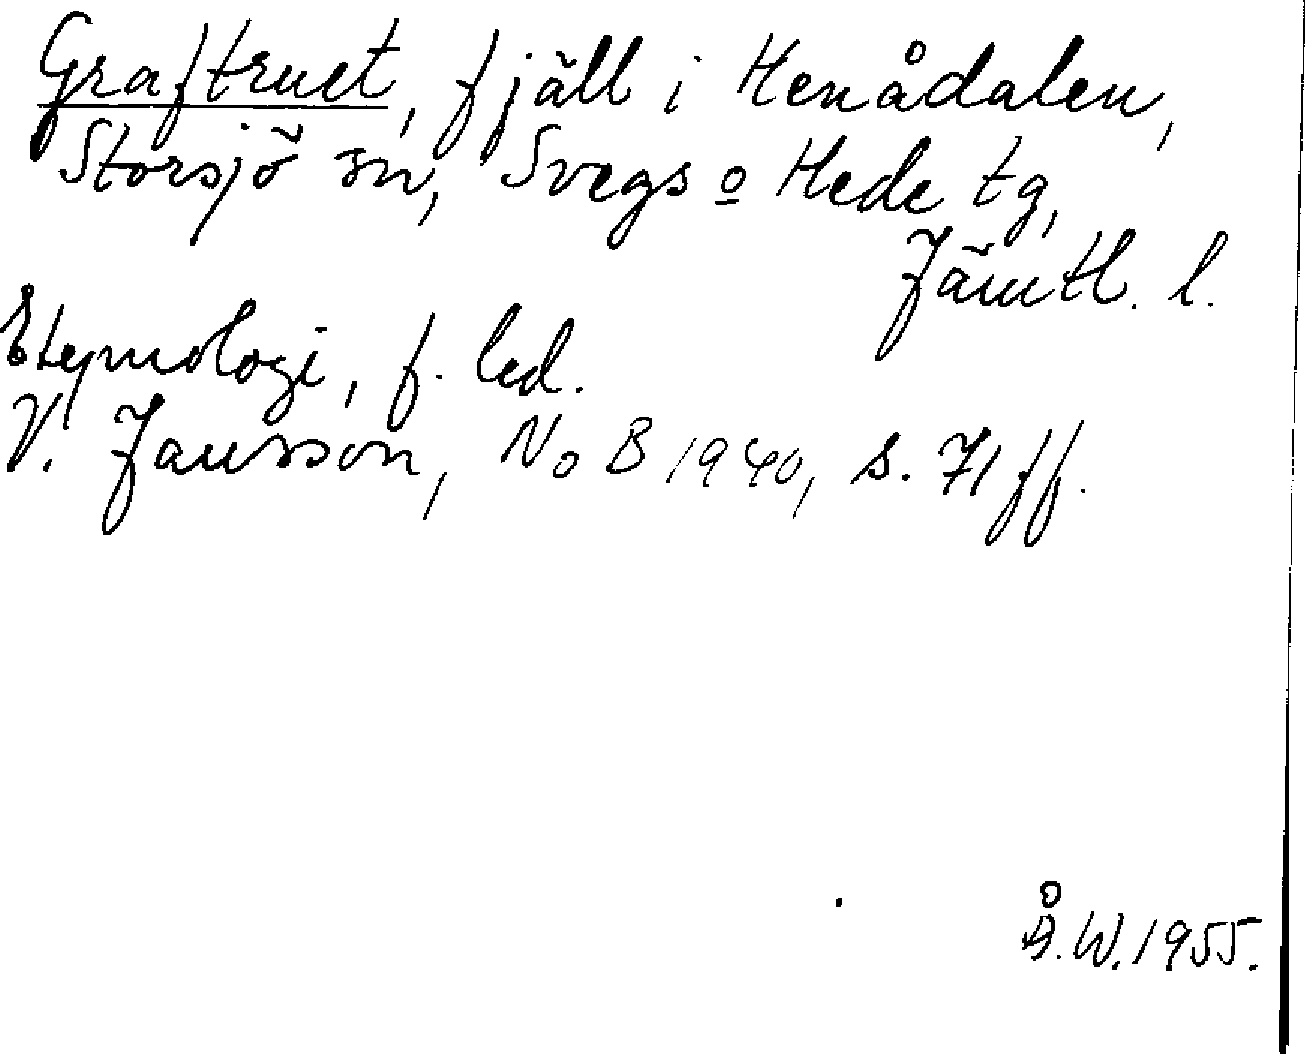 Graftruet, fjäll i Henådalen,
Storsjö sn, Svegs o Hede tg,
Jämtl. l.
Etymologi, f. led.
V. Jansson, NoB 1940, s. 71 ff.
Å.W. 1955.